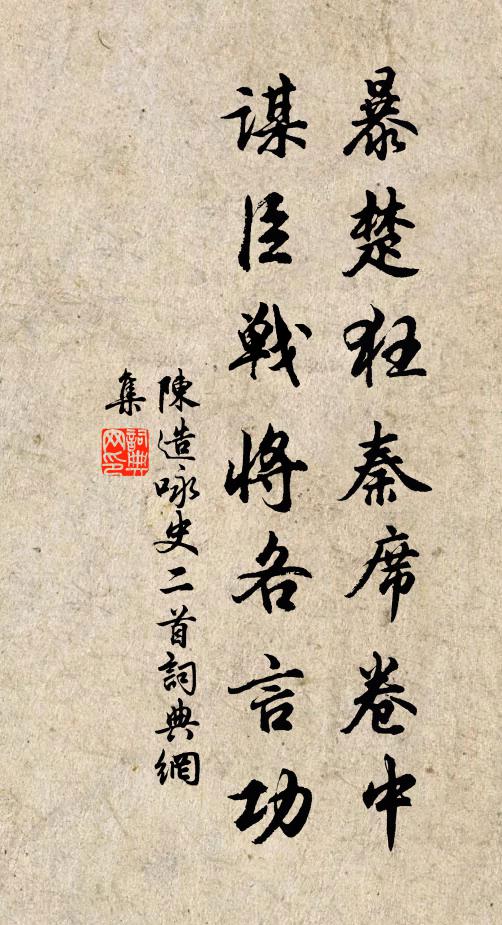 暴楚狂秦席卷中
謀臣戰將各言功
陳造咏史二首詞典網
集
詞典
网印